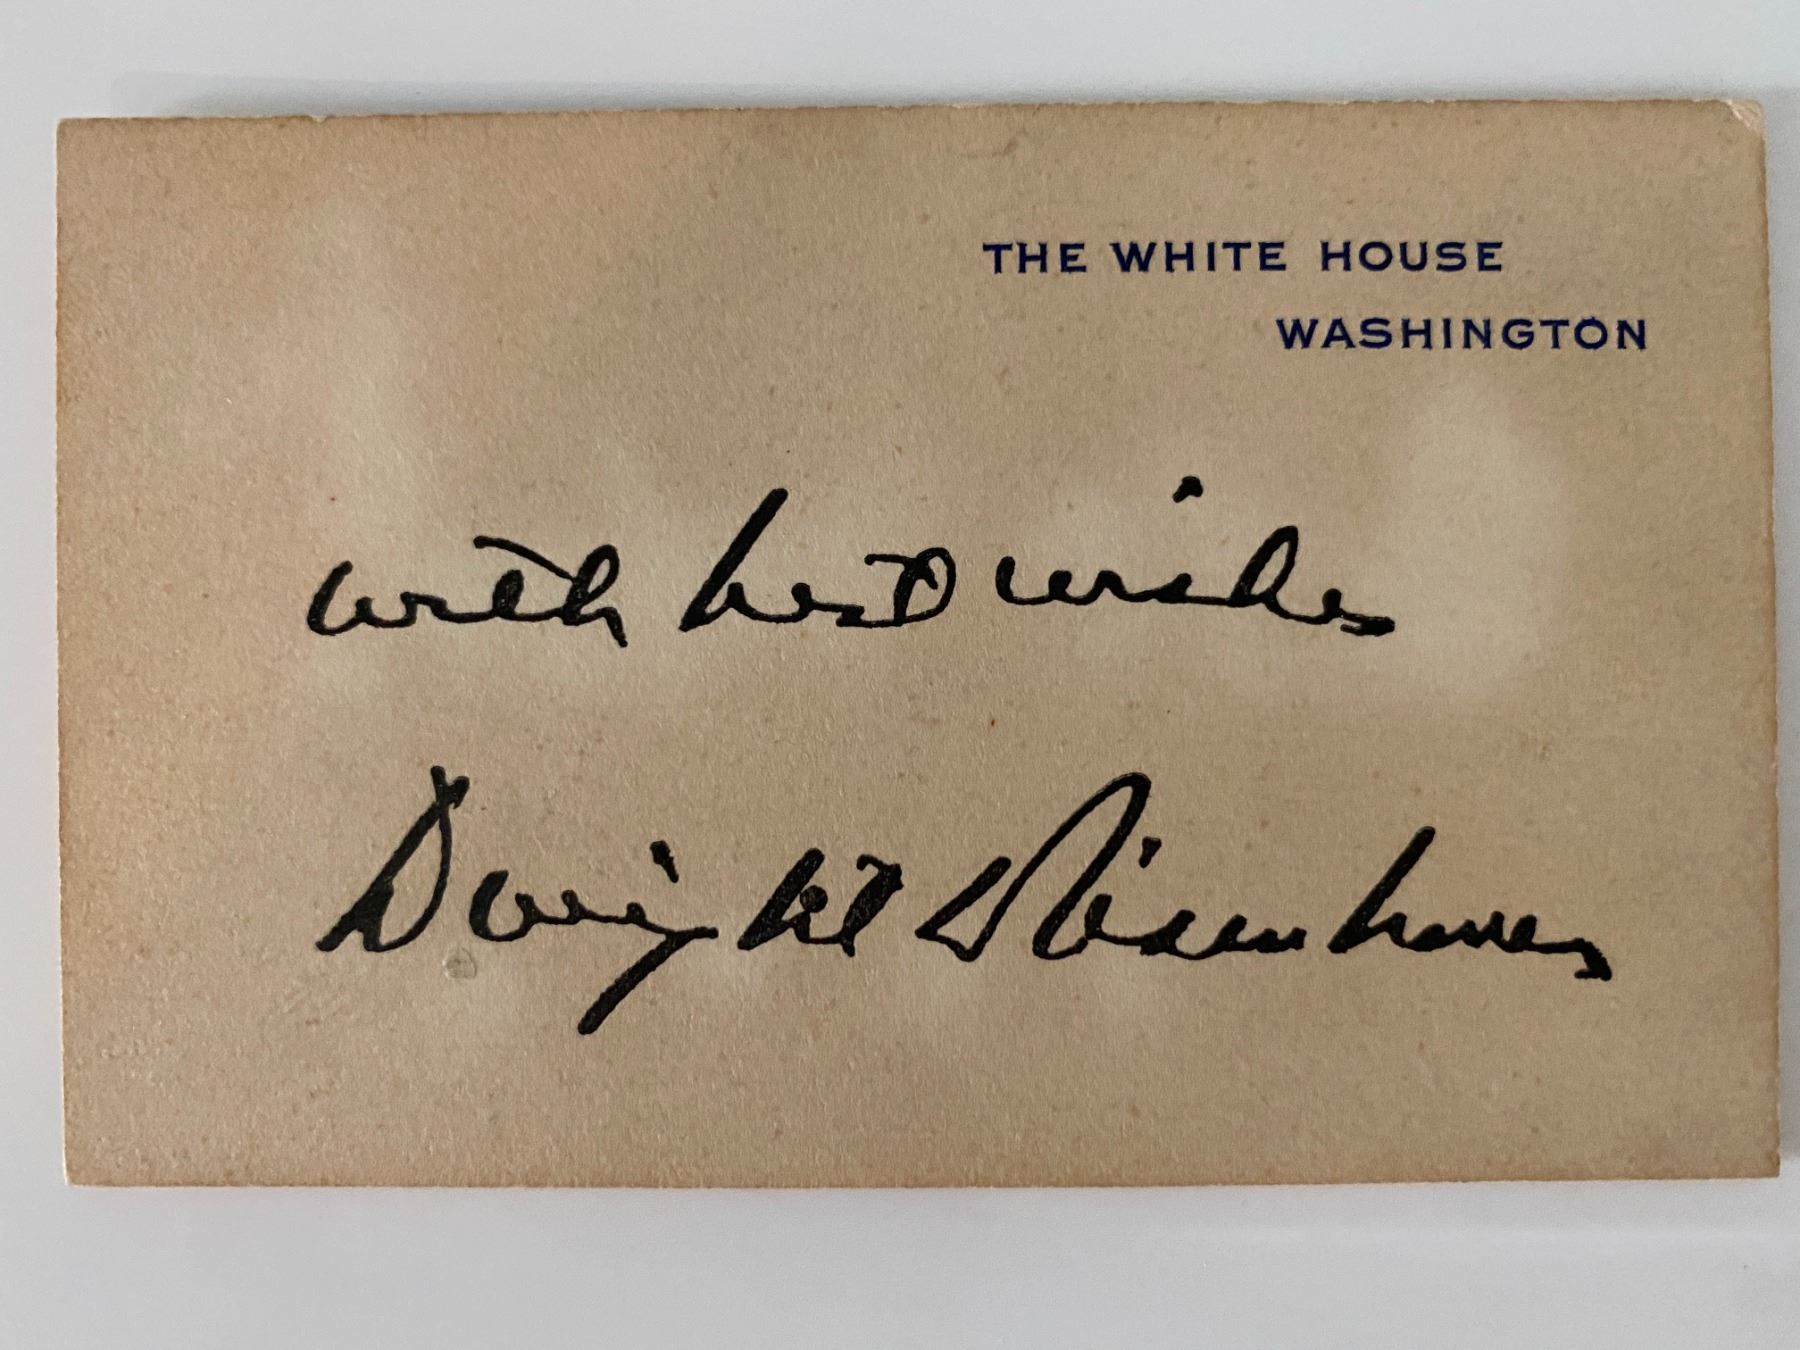 THE WHITE HOUSE
WASHINGTON
with best wishes
Dwight D Eisenhower